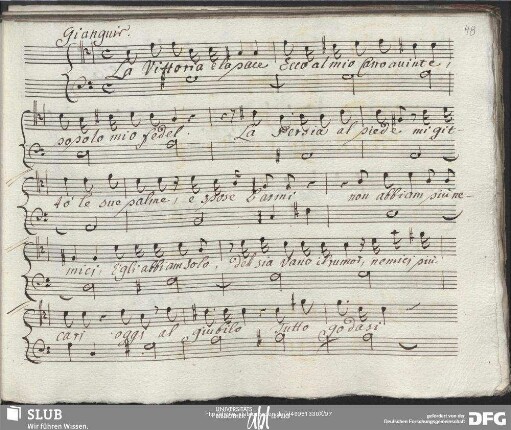 Gianguir.
48
La Vittoria e la pace Ecco al mio
popolo mio fedel. La Persia al piede mi git
tò le sue palme, e l'armi non abbiam più ne-
mici, Egli abbiam solo, del sia vano il rumor, nemici più
cari oggi al giubilo Tutto godasi
SLUB
Wir führen Wissen.
UNIVERSITÄTS
gefördert von der
Deutschen Forschungsgemeinschaft
DFG